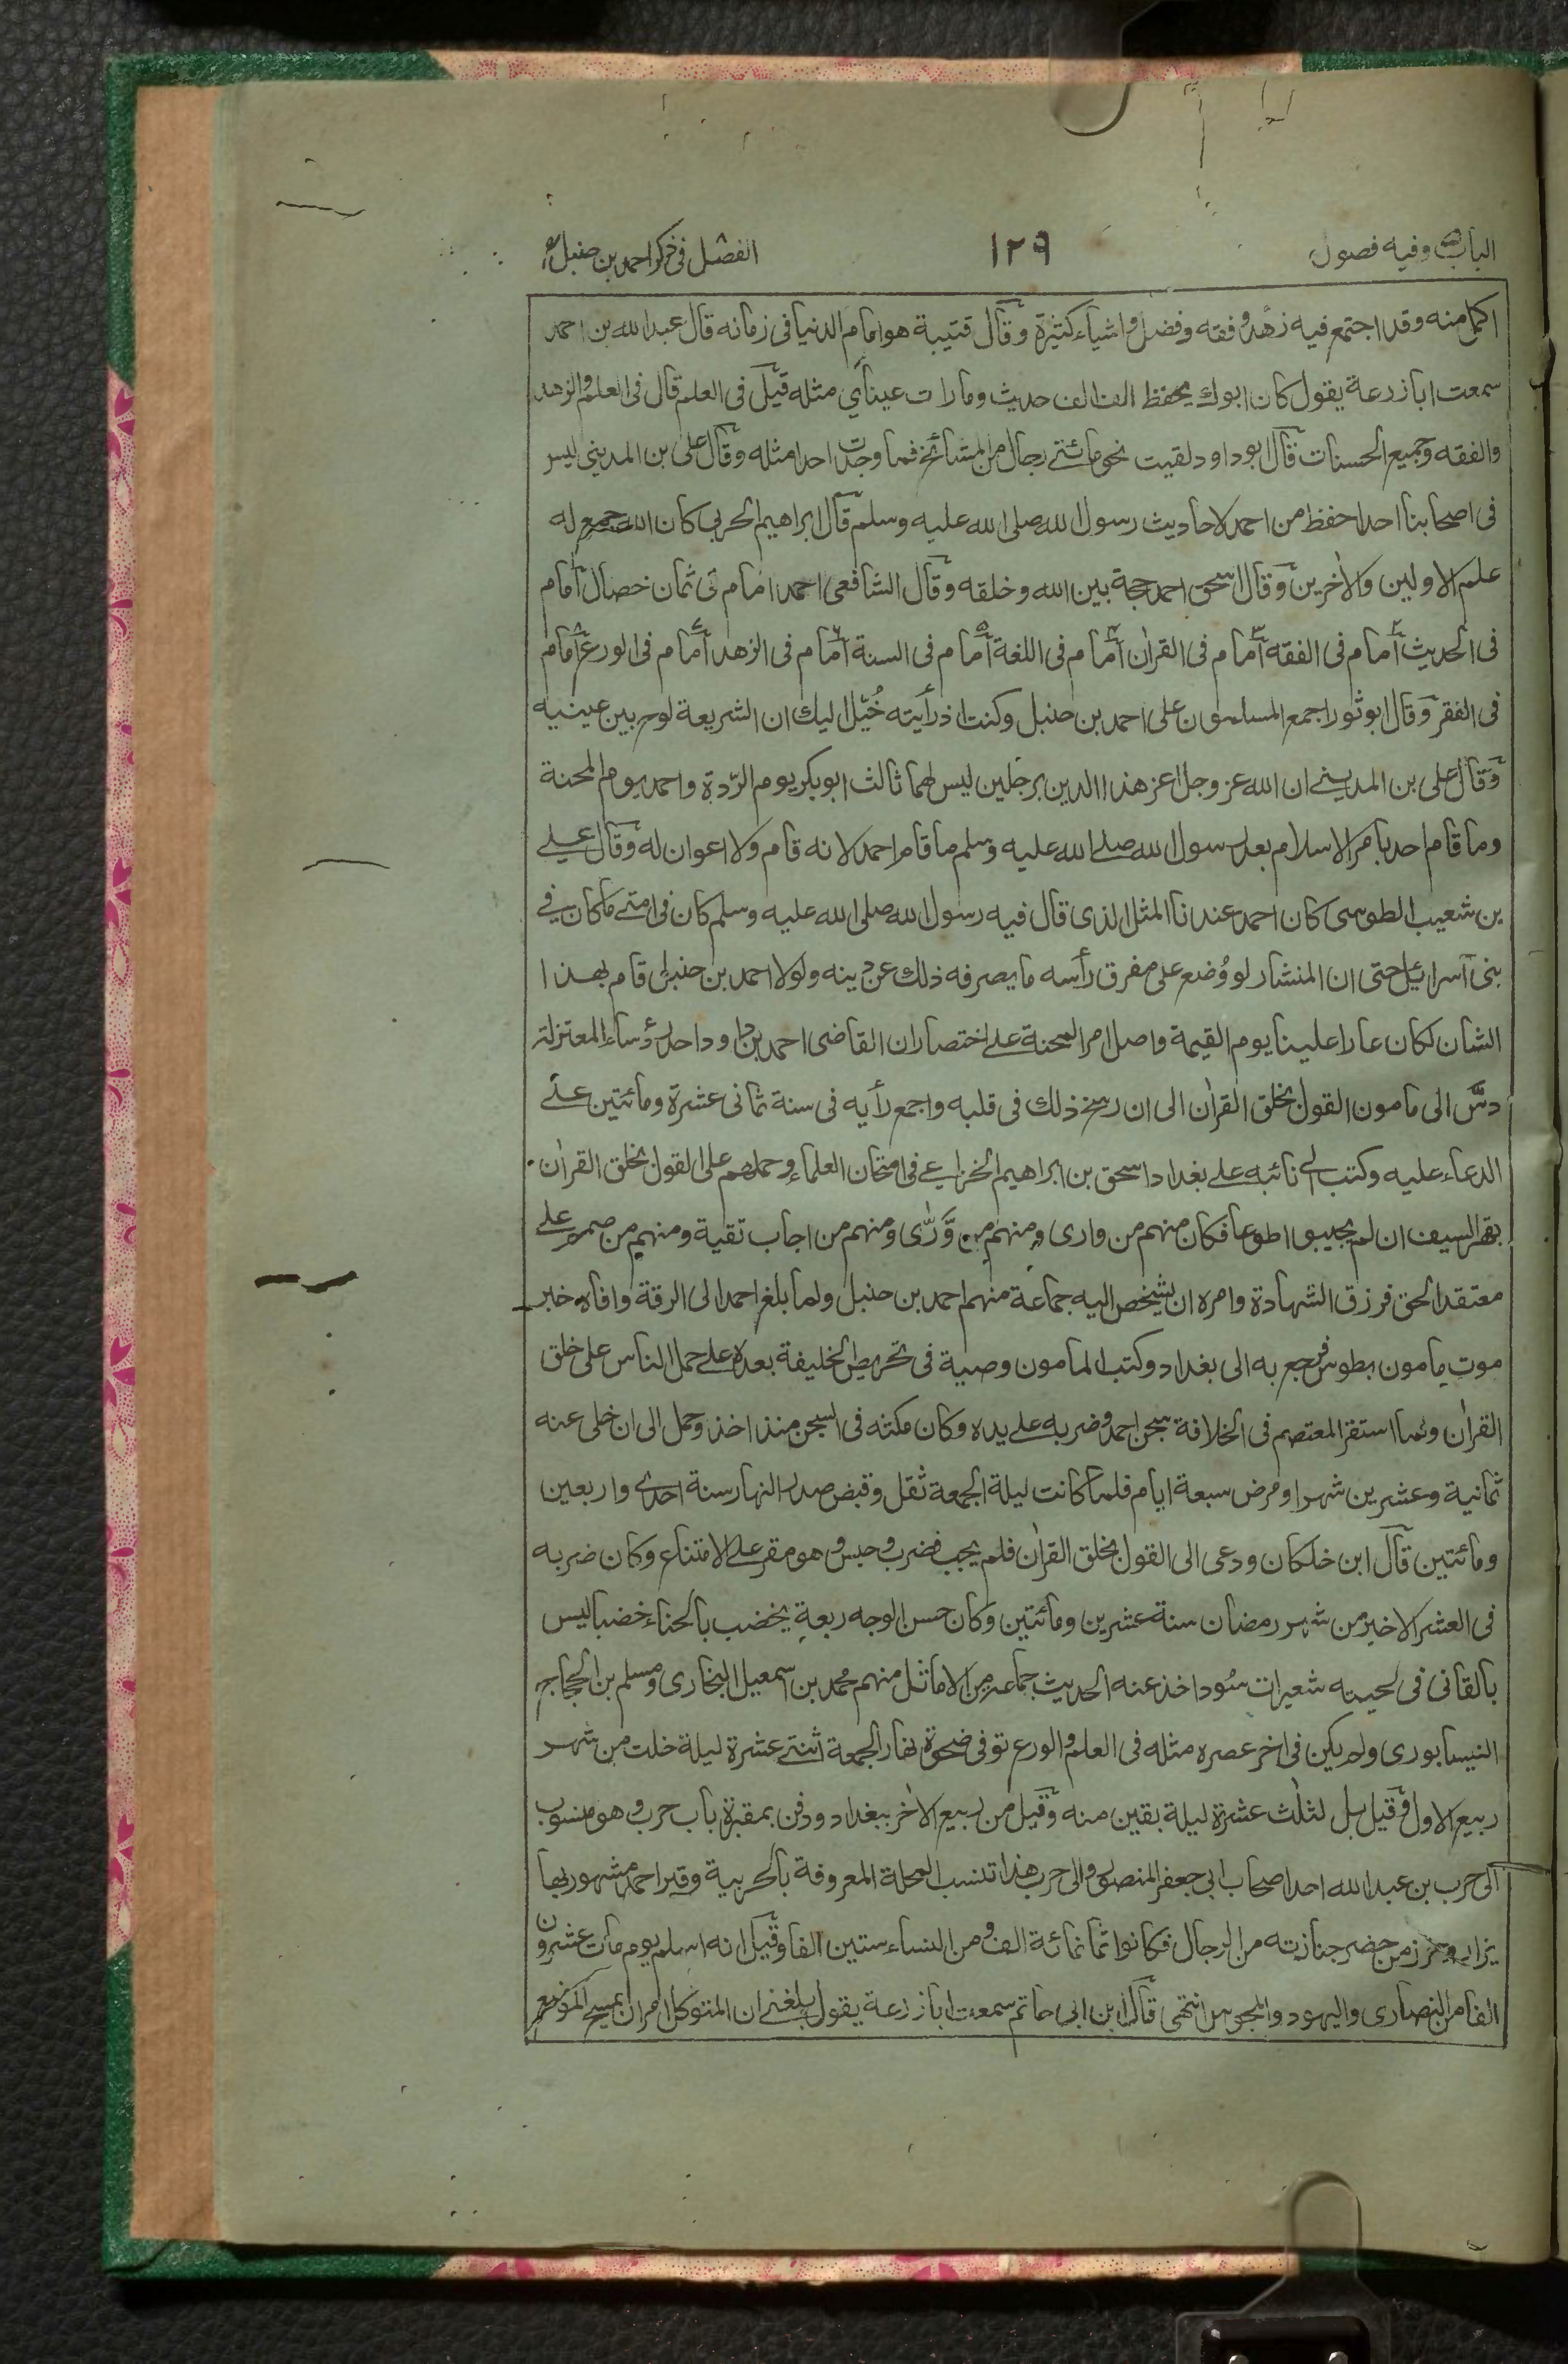 الباب وفيه فصول
١٢٩
الفصل فى ذكر احمد بن حنبل
اكمل منه وقد اجتمع فيه زهد وفقه وفضل واشياء كثيرة وقال قتيبة هو امام الدنيا فى زمانه قال عبد الله بن احمد
سمعت ابا زرعة يقول كان ابوك يحفظ الف الف حديث وما رات عيناي مثله قيل فى العلم قال فى العلم والزهد
والفقه وجميع الحسنات قال ابو داود لقيت نحو مائتے رجال من المشائخ فما وجدت احدا مثله وقال على بن المدينى ليس
فى اصحابنا احد احفظ من احمد لاحاديث رسول الله صلى الله عليه وسلم قال ابراهيم الحربى كان الله جمع له
علم الاولين والاخرين وقال اسحق احمد حجة بين الله وخلقه وقال الشافعى احمد امام فى ثمان خصال امام
فى الحديث امام فى الفقه امام فى القران امام فى اللغة امام فى السنة امام فى الزهد امام فى الورع امام
فى الفقر وقال ابو ثور اجمع المسلمون على احمد بن حنبل وكنت اذ رأيته خُيّل اليك ان الشريعة لوح بين عينيه
وقال على بن المدينے ان الله عز وجل اعز هذا الدين برجلين ليس لهما ثالث ابو بكر يوم الرّدة واحمد يوم المحنة
وما قام احد بامر الاسلام بعد رسول الله صلے الله عليه وسلم ما قام احمد لانه قام ولا اعوان له وقال علے
بن شعيب الطوسى كان احمد عندنا المثل الذى قال فيه رسول الله صلى الله عليه وسلم كان فى امتے ما كان فے
بنى آسرائيل حتى ان المنشار لو وُضع على مفرق رأسه ما يصرفه ذلك عن دينه ولولا احمد بن حنبل قام بهذا
الشان لكان عارا علينا يوم القيمة واصل امر المحنة علے اختصار ان القاضى احمد بن داود احد رؤساء المعتزلة
دسَّ الى مامون القول بخلق القران الى ان رسخ ذلك فى قلبه واجمع رأيه فى سنة ثمانى عشرة ومائتين علے
الدعاء عليه وكتب الے نائبه علے بغداد اسحق بن ابراهيم الخزاعے فى امتحان العلماء وحملهم على القول بخلق القران
بقهر السيف ان لم يجيبوا طوعا فكان منهم من وارى ومنهم من وَّرّى ومنهم من اجاب تقية ومنهم من صمم علے
معتقد الحق فرزق الشهادة وامره ان يشخص اليه جماعة منهم احمد بن حنبل ولما بلغ احمد الى الرقة وافاه خبر
موت مامون بطوس فرجع به الى بغداد وكتب المامون وصية فى تحريض الخليفة بعده علے حمل الناس على خلق
القران ولما استقر المعتصم فى الخلافة سجن احمد وضربه علے يده وكان مكثه فى السجن منذ اخذ وحمل الى ان خلى عنه
ثمانية وعشرين شهرا ومرض سبعة ايام فلما كانت ليلة الجمعة ثقل وقبض صدر النهار سنة احدى واربعين
ومائتين قال ابن خلكان ودعى الى القول بخلق القران فلم يجب فضرب وحبس وهو مقر علے الامتناع وكان ضربه
فى العشر الاخير من شهر رمضان سنة عشرين ومائتين وكان حسن الوجه ربعة يخضب بالحناء خضبا ليس
بالقانى فى لحيته شعيرات سُود اخذ عنه الحديث جماعة من الاماثل منهم محمد بن اسمعيل البخارى ومسلم بن الحجاج
النيسابورى ولم يكن فى اخر عصره مثله فى العلم والورع توفى ضحوة نهار الجمعة اثنتے عشرة ليلة خلت من شهر
ربيع الاول وقيل بل لثلٰث عشرة ليلة بقين منه وقيل من ربيع الاخر ببغداد ودفن بمقبرة باب حرب وهو منسوب
الى حرب بن عبد الله احد اصحاب ابى جعفر المنصور والى حرب هذا تنسب المحلة المعروفة بالحربية وقبر احمد مشهور بها
يزار وحزر من حضر جنازته من الرجال فكانوا ثمانمائة الف ومن النساء ستين الفا وقيل انه اسلم يوم مات عشرون
الفا من النصارى واليهود والمجوس انتهى قال ابن ابى حاتم سمعت ابا زرعة يقول بلغنے ان المتوكل امر ان يمسح الموضع